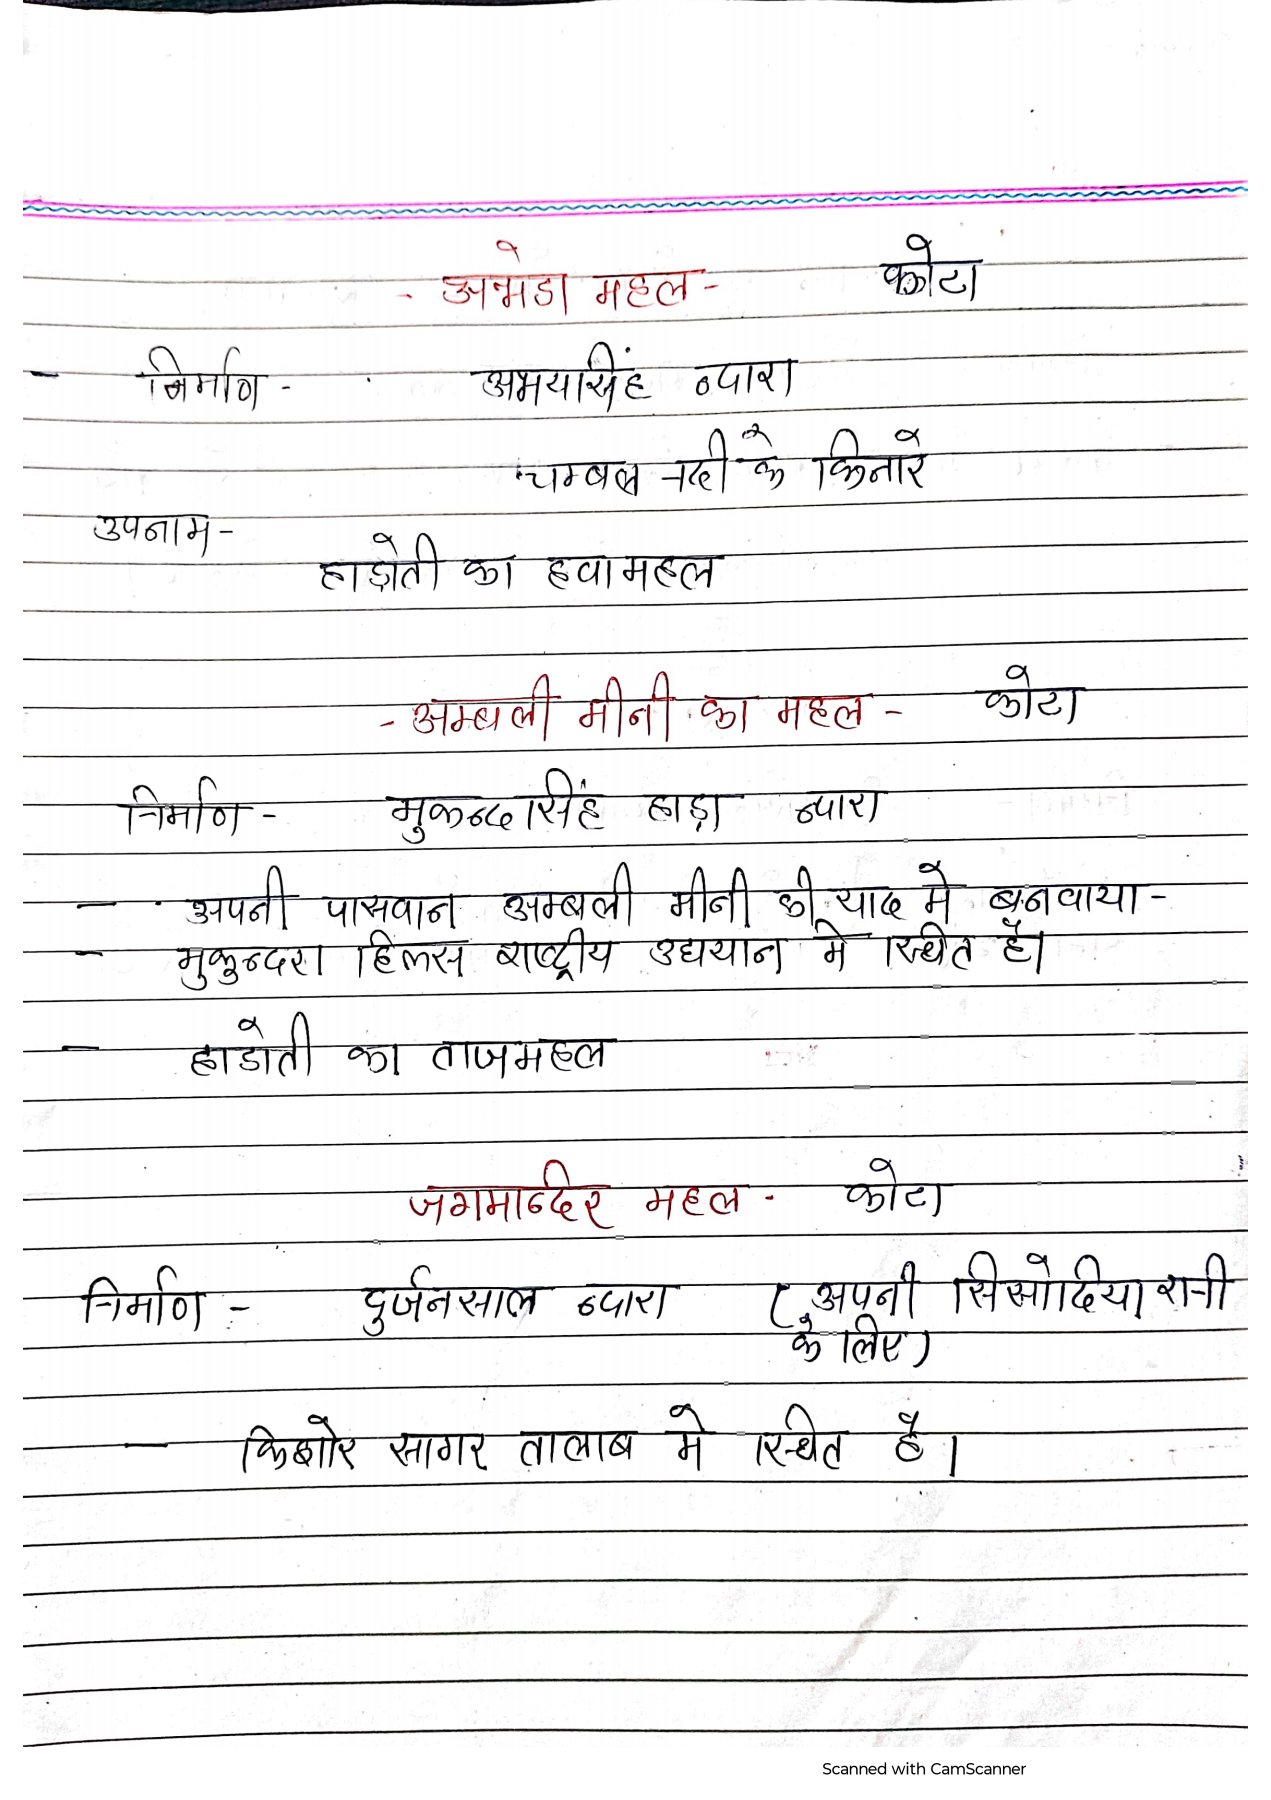 - अन्मेडा महल - कोटा
- निर्माण - अभयसिंह व्दारा
चम्बल नदी के किनारे
उपनाम -
हाड़ोती का हवामहल
- अम्बली मीनी का महल - कोटा
निर्माण - मुकन्दसिंह हाड़ा व्दारा
- अपनी पासवान अम्बली मीनी की याद मे बनवाया -
- मुकुन्दरा हिलस राष्ट्रीय उद्ययान मे स्थित है।
- हाडोती का ताजमहल
जगमान्दिर महल - कोटा
निर्माण - दुर्जनसाल व्दारा ( अपनी सिसोदिया रानी
के लिए)
- किशोर सागर तालाब मे स्थित है।
Scanned with CamScanner